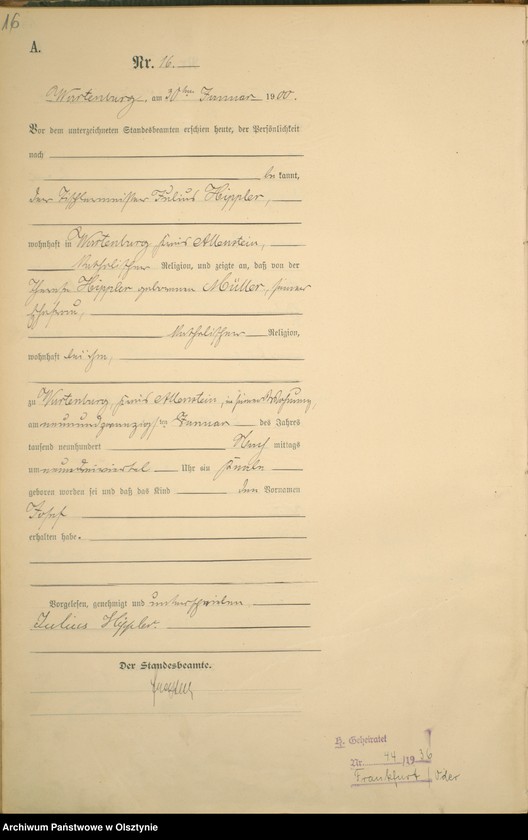 16
A.
Nr. 16.
Wartenburg am 30ten Januar 1900.
Vor dem unterzeichneten Standesbeamten erschien heute, der Persönlichkeit
nach
be kannt,
der Tischlermeister Julius Hippler,
wohnhaft in Wartenburg Kreis Allenstein,
katholischer Religion, und zeigte an, daß von der
Therese Hippler geborenen Müller, seiner
Ehefrau,
katholischer Religion,
wohnhaft bei ihm,
zu Wartenburg, Kreis Allenstein, in seiner Wohnung,
am neunundzwanzigsten Januar des Jahres
tausend neunhundert Nach mittags
um Uhr ein Knabe
geboren worden sei und daß das Kind den Vornamen
Josef
erhalten habe.
Vorgelesen, genehmigt und unterschrieben
Julius Hippler.
Der Standesbeamte.
H. Geheiratet
Nr. 44/1936
Frankfurt / Oder
Archiwum Państwowe w Olsztynie